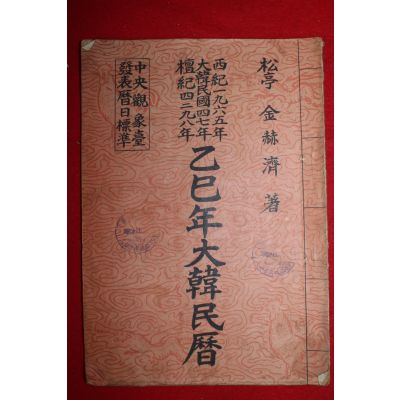 松亭 金赫濟 著
西紀一九六五年
大韓民國四七年
檀紀四二九八年
乙巳年大韓民曆
中央觀象臺
發表曆日標準